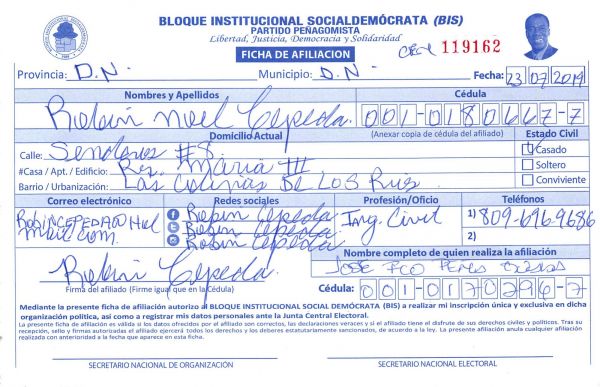 BLOQUE INSTITUCIONAL SOCIALDEMÓCRATA (BIS)
PARTIDO PEÑAGOMISTA
Libertad, Justicia, Democracia y Solidaridad
FICHA DE AFILIACION
119162
Provincia: D.N. Municipio: D.N. Fecha: 23/07/2019
Nombres y Apellidos Cédula
Robin Noel Cepeda. 001-0180667-7
Domicilio Actual (Anexar copia de cédula del afiliado) Estado Civil
Calle: Senderos #8 Casado
#Casa / Apt. / Edificio: Res. Maria III Soltero
Barrio / Urbanización: Las Colinas De Los Rios Conviviente
Correo electrónico Redes sociales Profesión/Oficio Teléfonos
Robin Cepeda Ing. Civil 1) 809-696-9686
Robin Cepeda 2)
Robin Cepeda
Nombre completo de quien realiza la afiliación
Robin Cepeda. José Fco Peres
Firma del afiliado (Firme igual que en la Cédula) Cédula: 001-0170296-7
Mediante la presente ficha de afiliación autorizo al BLOQUE INSTITUCIONAL SOCIAL DEMÓCRATA (BIS) a realizar mi inscripción única y exclusiva en dicha
organización política, así como a registrar mis datos personales ante la Junta Central Electoral.
La presente ficha de afiliación es válida si los datos ofrecidos por el afiliado son correctos, las declaraciones veraces y si el afiliado tiene el disfrute de sus derechos civiles y políticos. Tras su
recepción, sello y firmas autorizadas el afiliado ejercerá todos los derechos y los deberes estatutariamente sancionados, de acuerdo a la ley. La presente afiliación anula cualquier afiliación
realizada con anterioridad a la fecha que aparece en esta ficha.
SECRETARIO NACIONAL DE ORGANIZACIÓN SECRETARIO NACIONAL ELECTORAL